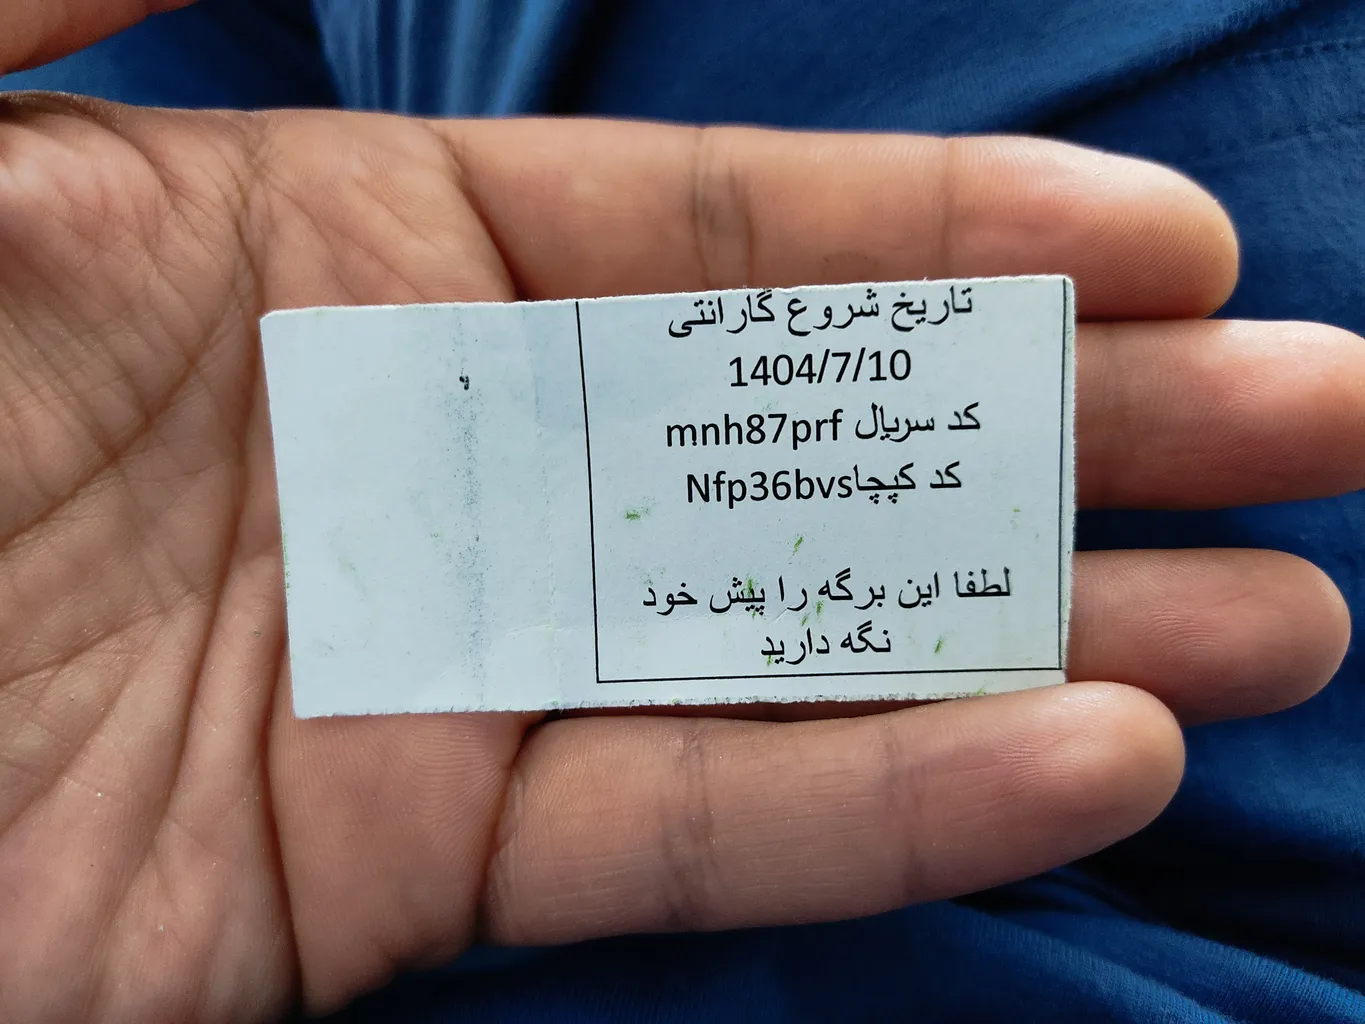 تاریخ شروع گارانتی
1404/7/10
کد سریال mnh87prf
کد کپچاNfp36bvs
لطفا این برگه را پیش خود
نگه دارید